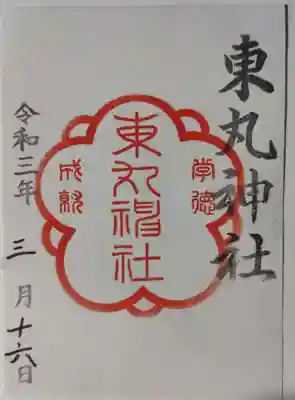 東丸神社
学徳
東丸神社
成就
令和三年
三月十六日